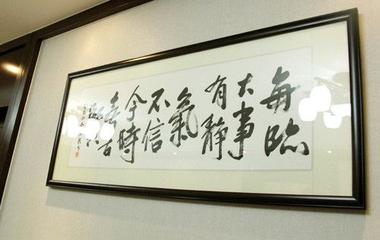 每臨
大事
有靜
氣
不信
今時
無古
賢